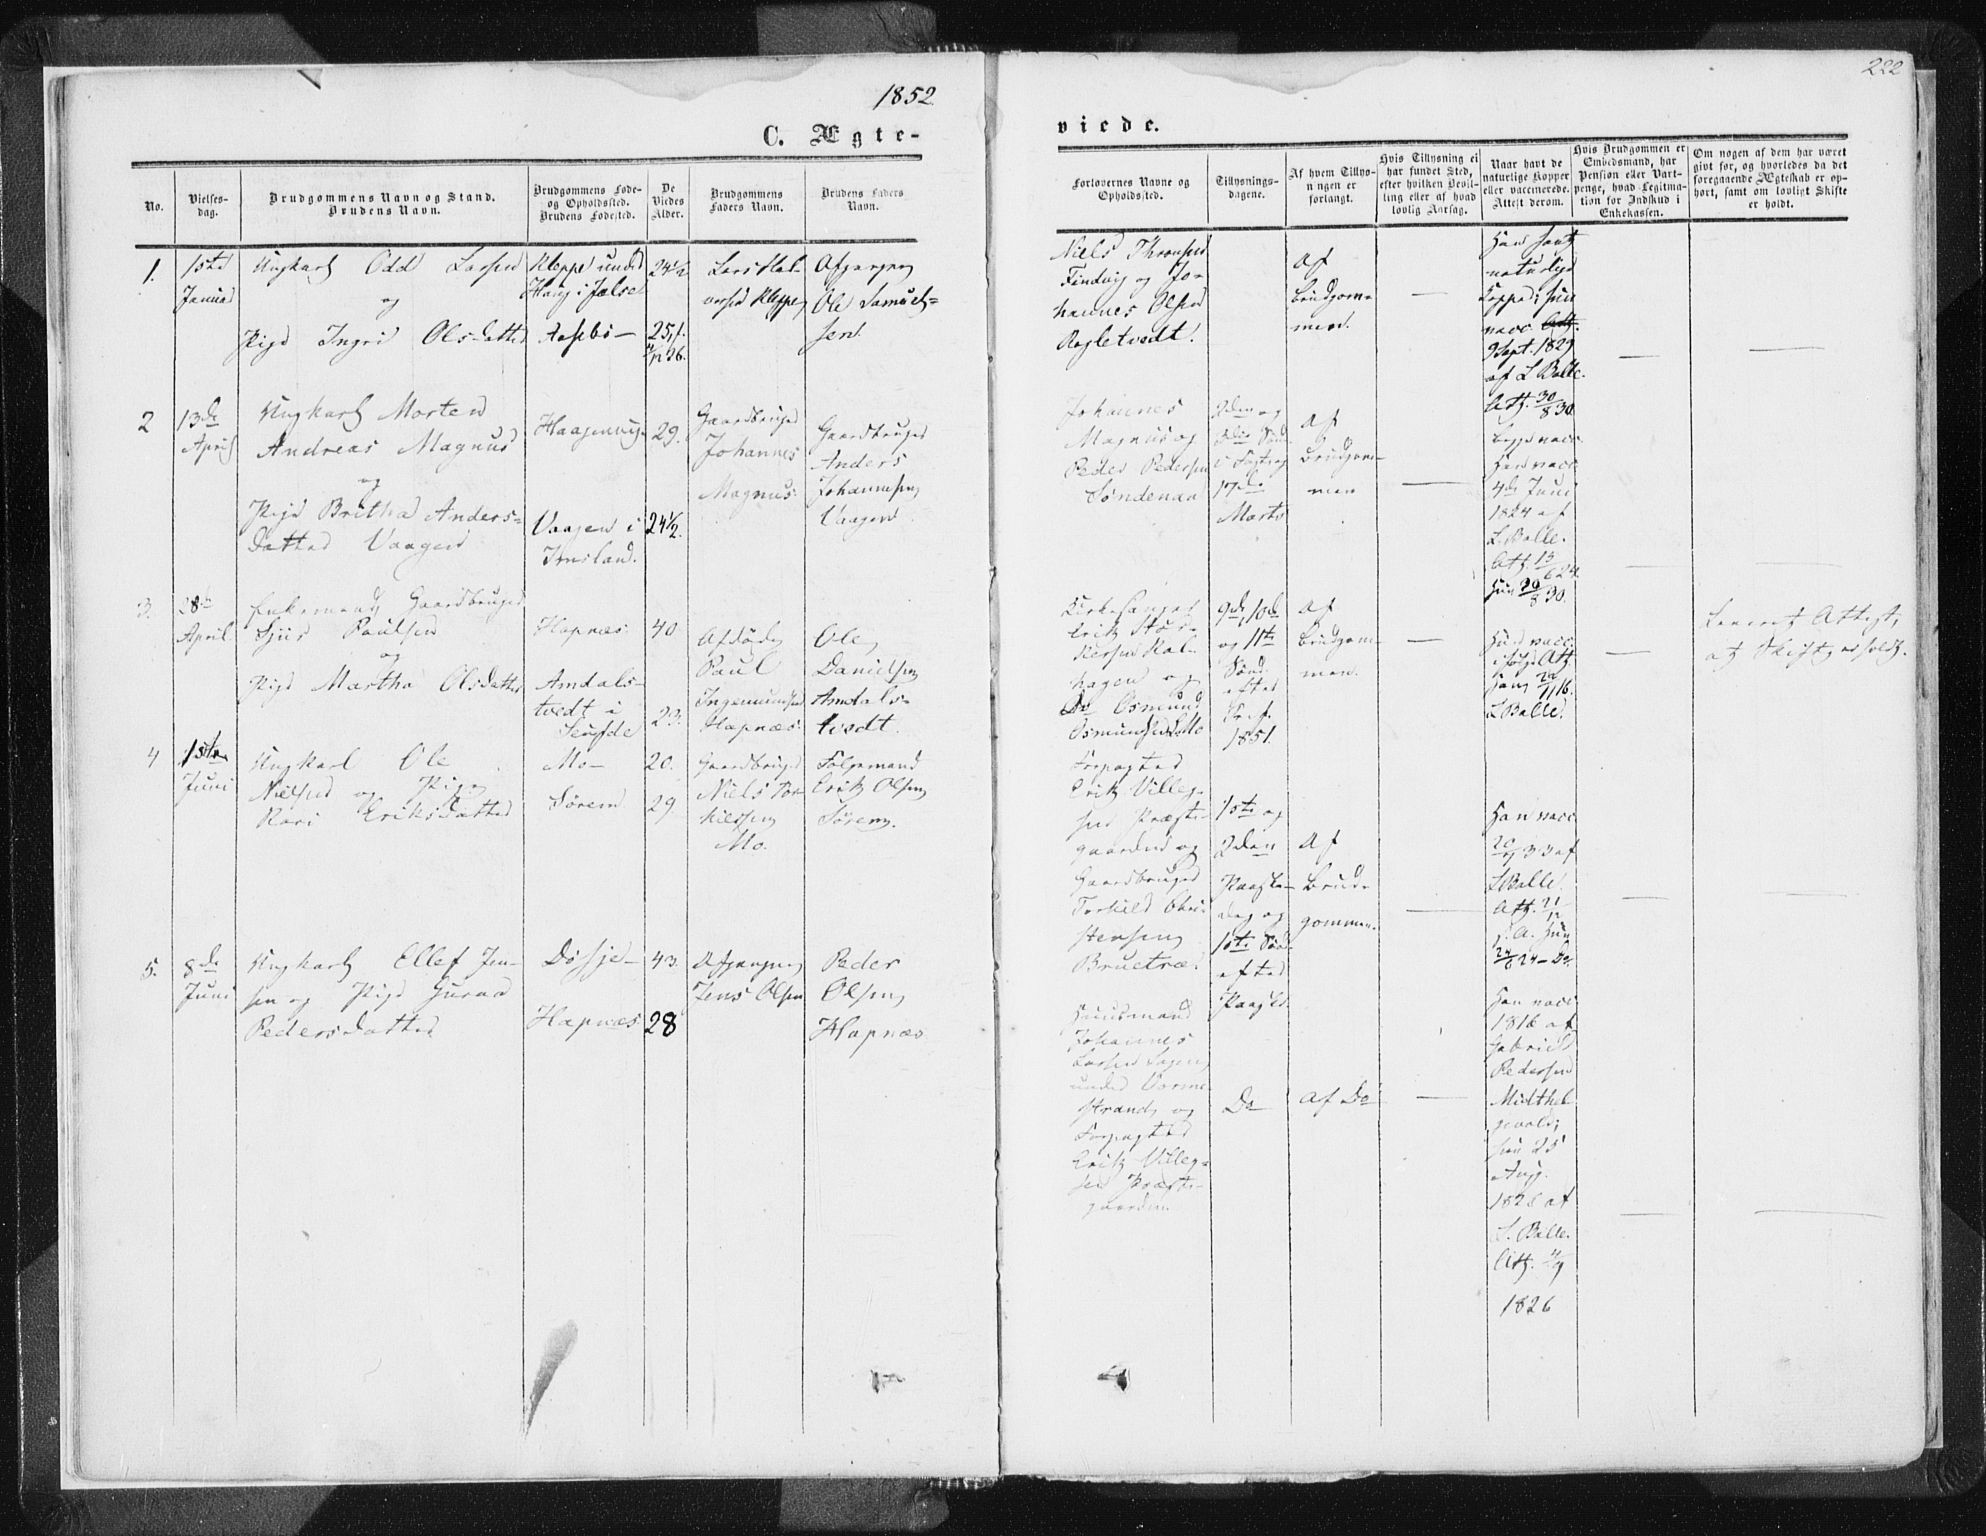 1852
222
C. Ægte-
viede.
No.
Vielses-
dag.
Brudgommens Navn og Stand.
Brudens Navn.
Brudgommens Føde-
og Opholdssted.
Brudens Fødested.
De
Viedes
Alder.
Brudgommens
Faders Navn.
Brudens Faders
Navn.
Forlovernes Navne og
Opholdssted.
Tillysnings-
dagene.
Af hvem Tillys-
ningen er
forlangt.
Hvis Tillysning ei
har fundet Sted,
efter hvilken Bevil-
ling eller af hvad
lovlig Aarsag.
Naar havt de
naturlige Kopper
eller vaccinerede.
Attest derom.
Hvis Brudgommen er
Embedsmand, har
Pension eller Vart-
penge, hvad Legitima-
tion for Indskud i
Enkekassen.
Om nogen af dem har været
gift før, og hvorledes da det
foregaaende Ægteskab er op-
hørt, samt om lovligt Skifte
er holdt.
1.
1ste
Januar
Ungkarl Odd Larsen
og
Pige Ingri Olsdatter
Kleppe under
Haug i Jelse
Aasebø
24½
25
Lars Hal-
vorsen Kleppe
Afgangne
Ole Samuel-
sen
Niels Thronsen
Findvig og Jo-
hannes Olsen
Rogletvedt.
Af
Brudgom-
men.
Han havt
naturlige
Kopper; hun
vacc.
9 Sept. 1829
af L Balle.
Att. 30/8 30
2
13de
April
Ungkarl Morten
Andreas Magnus
og
Pige Britha Anders-
datter Vaagen
Haagenvig
Vaagen i
Imsland.
29.
24½.
Gaardbruger
Johannes
Magnus
Gaardbruger
Anders
Johannesen
Vaagen
Johannes
Magnus og
Peder Pedersen
Søndenaa
2den og
3die Sønd.
i Faste og
17de
Marts
Af
Brudgom-
men
Begge vacc.
Han vacc.
4de Juni
1824 af
L. Balle.
Att. 13/6 24.
Hun 30/8 30.
3.
28de
April
Enkemand Gaardbruger
Sjur Paulsen
og
Pige Martha Olsdatter
Hapnæs
Amdals-
tvedt i
40
23.
Afdøde
Paul
Ingemundsen
Hapnæs.
Ole
Danielsen
Amdals-
tvedt.
Kirkesanger
Erik
og
Do Osmund
Osmundsen Mo
9de, 10de
og 11te
Sønd.
efter
Tref.
1851.
Af
Brudgom-
men.
Hun vacc.
ifølge Att.
L Balle.
Leveret Attest,
at Skifte er holdt.
4
1ste
Juni
Ungkarl Ole
Nielsen og Pige
Kari Eriksdatter
Mo
Sørem
20.
29.
Gaardbruger
Niels Tor-
kielsen
Mo.
Følgemand
Erik Olsen
Sørem.
Forpagter
Erik Villeg-
sen Præste-
gaarden og
Gaardbruger
Torkild Chri-
stensen
Bruetræ.
1ste og
2den
Paaske-
dag og
1ste Sønd.
efter
Paaske.
Af
Brud-
gommen.
Han vacc.
af
L Balle.
Att.
Hun
Do.
5.
8de
Juni
Ungkarl Ellef Jen-
sen og Pige Guroe
Pedersdatter
Døsje
Hapnæs
43.
28
Afgangne
Jens Olsen
Peder
Olsen
Hapnæs
Huusmand
Johannes
Larsen
under Vorme-
strand og
Forpagter
Erik Villeg-
sen Præste-
gaarden.
Do
Af Do
Han vacc.
1816 af
Gabriel
Pedersen
hun 25
Aug.
1826 af
L. Balle.
Att. 4/9
1826